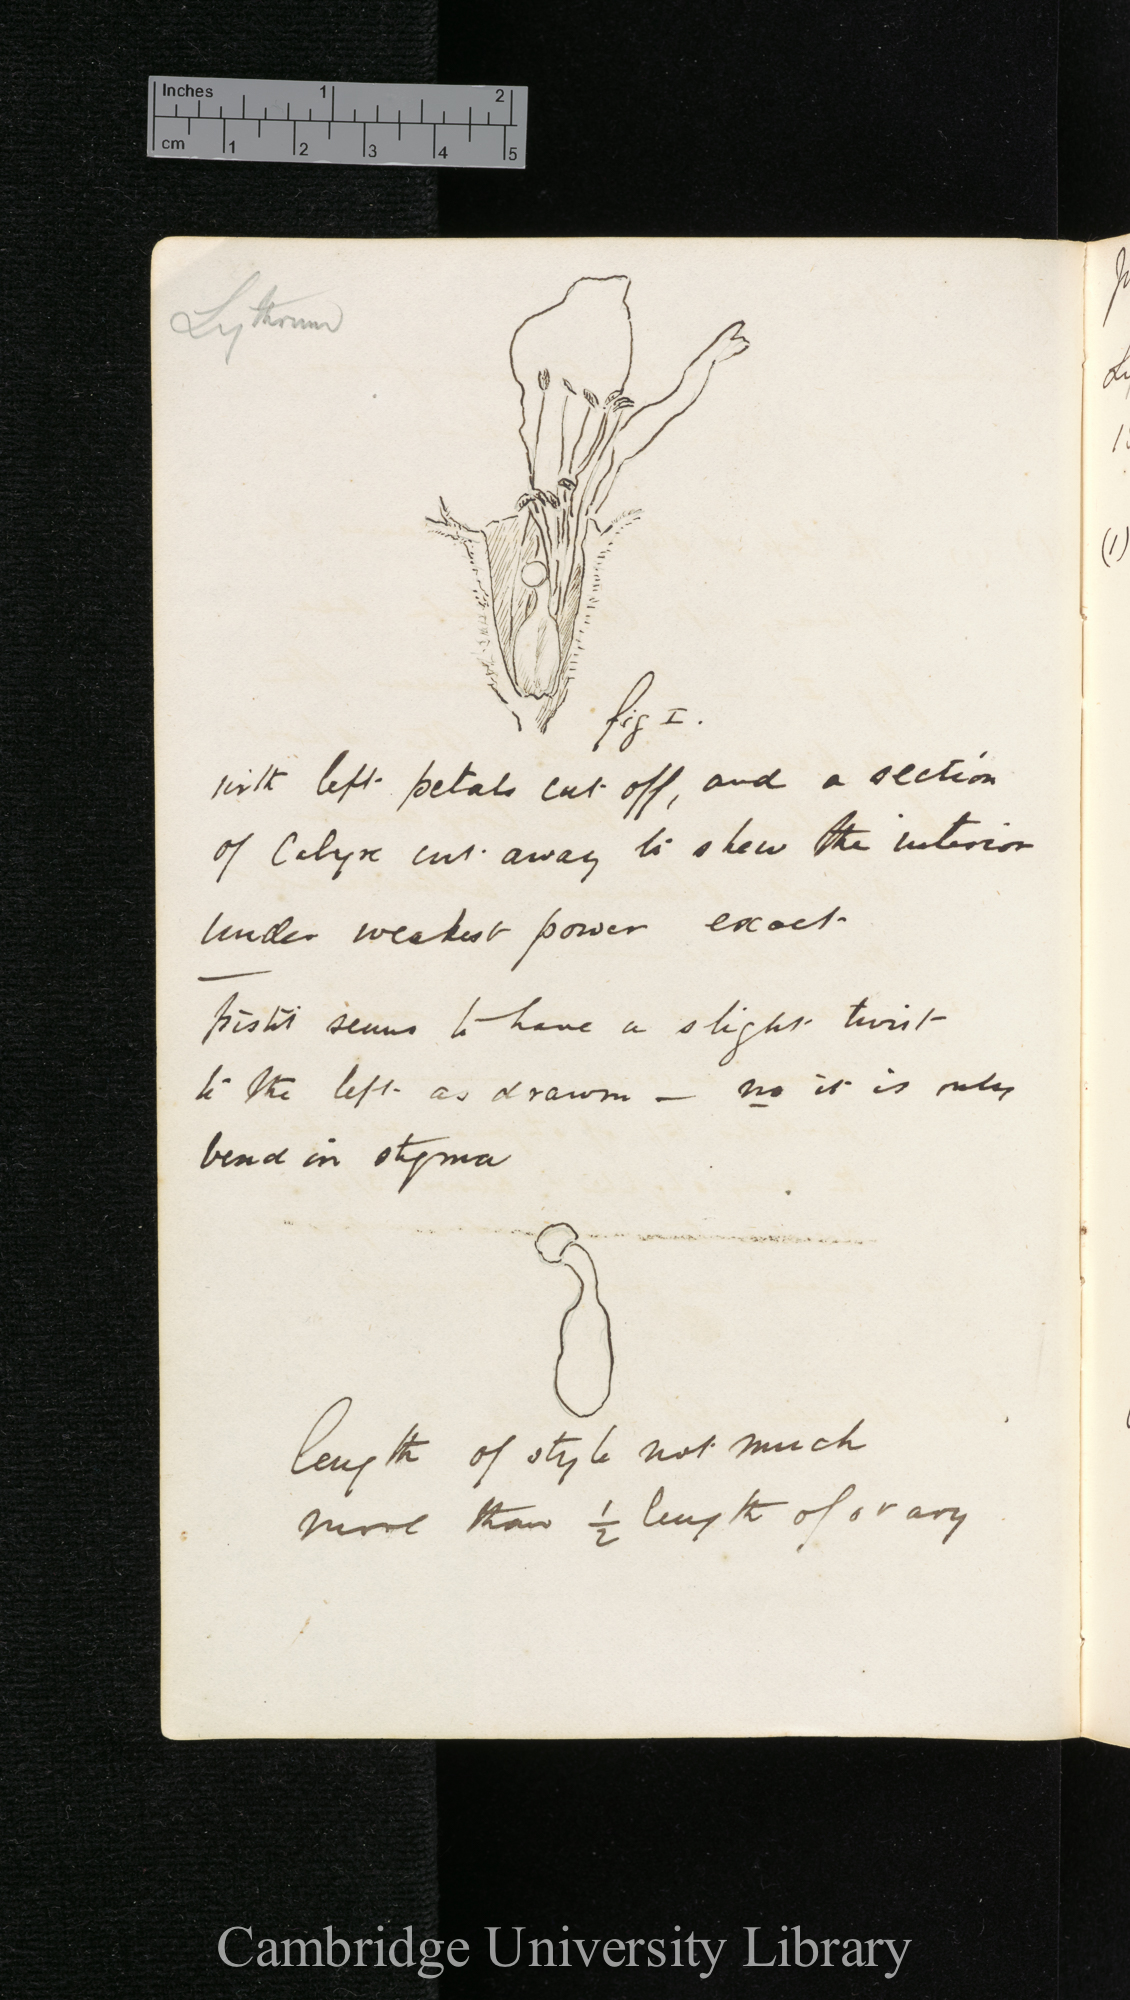 Inches 1 2
cm 1 2 3 4 5
Lythrum
fig I.
with left petals cut off, and a section
of Calyx cut away to shew the interior
under weakest power exact
pistil seems to have a slight twist
to the left as drawn – no it is only
bend in stigma
length of style not much
more than ½ length of ovary
(1)
Cambridge University Library